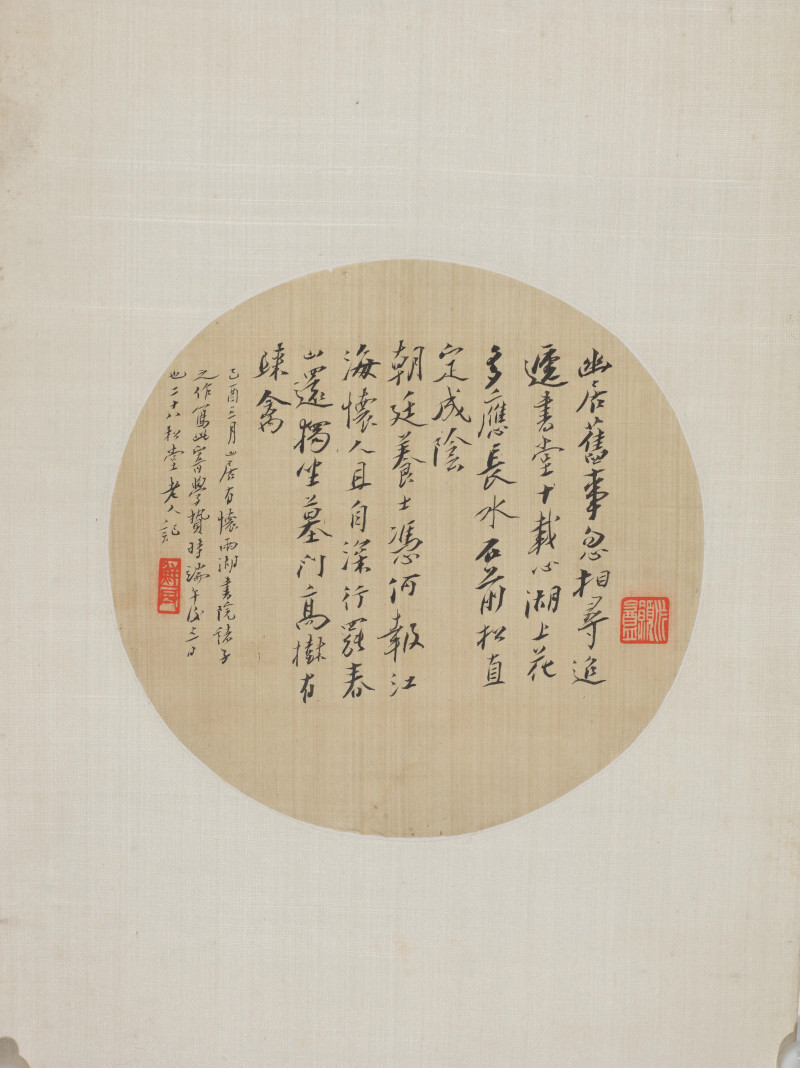 幽居舊事忽相尋迢
遞書堂十載心湖上花
多應長水石前松直
定成陰
朝廷養士憑何報江
海懷人且自深行罷春
山還獨坐墓門高樹有
疎禽
己酉三月山居有懷兩湖書院諸子
之作寫此寄學贄時端午後三日
也二十八松堂老人記